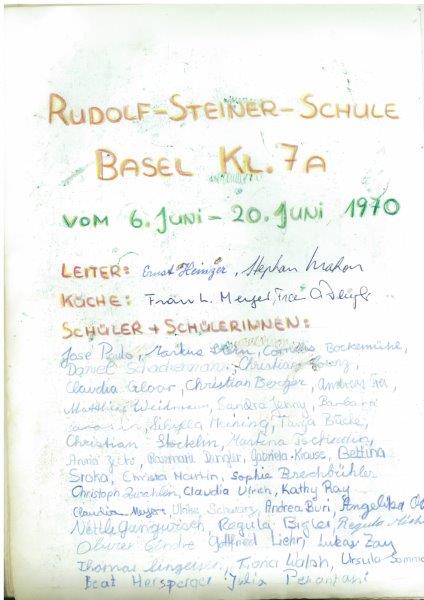 RUDOLF-STEINER-SCHULE
BASEL KL. 7A
VOM 6. JUNI - 20. JUNI 1970
LEITER: Ernst Heiniger, Stephan
KÜCHE: Frau L. Menger, Frau
SCHÜLER + SCHÜLERINNEN:
José Paulo, Markus Stern, Cornelius Bockemühl,
Daniel Schachenmann, Christian
Claudia Gloor, Christian Berger, Andreas
Matthias Weidmann, Sandra Jenny, Barbara
Sibylla Meining, Tanja Bücke,
Christian Stöcklin, Martina Tschudin,
Anna Rosmarie Dangler, Gabriela Krause, Bettina
Sroka, Christa Martin, Sophie Brechbühler
Christoph Claudia Ulrich, Kathy Ray
Claudia Meyer, Ulrike Schwarz, Andrea Buri, Angelika
Regula Bigler, Regula
Olivier Gindre, Gottfried Liehr, Lukas Zay
Thomas Fiona Walsh, Ursula
Beat Hersperger Julia